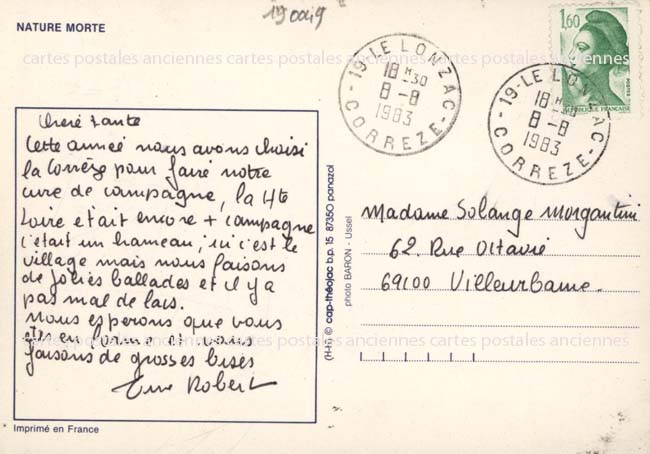 19 0049
NATURE MORTE
cartes postales anciennes cartes postales anciennes cartes postales anciennes
19-LE LONZAC
18 H 30
8-8
1983
CORREZE
19-LE LONZAC
18 H 30
8-8
1983
CORREZE
1,60
POSTES
REPUBLIQUE FRANÇAISE
Cheré tante
Cette année nous avons choisi
la Corrèze pour faire notre
cure de campagne, la Hte
Loire était encore + campagne
c'était un hameau, ici c'est le
village mais nous faisons
de jolies ballades et il y a
pas mal de lacs.
nous esperons que vous
êtes en forme et vous
faisons de grosses bises
Robert
(H-h) © cap-théojac b.p. 15 87350 panazol
photo BARON - Ussel
Madame Solange Morgantini
62. Rue Octavie
69100 Villeurbanne.
cartes postales anciennes cartes postales anciennes cartes postales anciennes
Imprimé en France